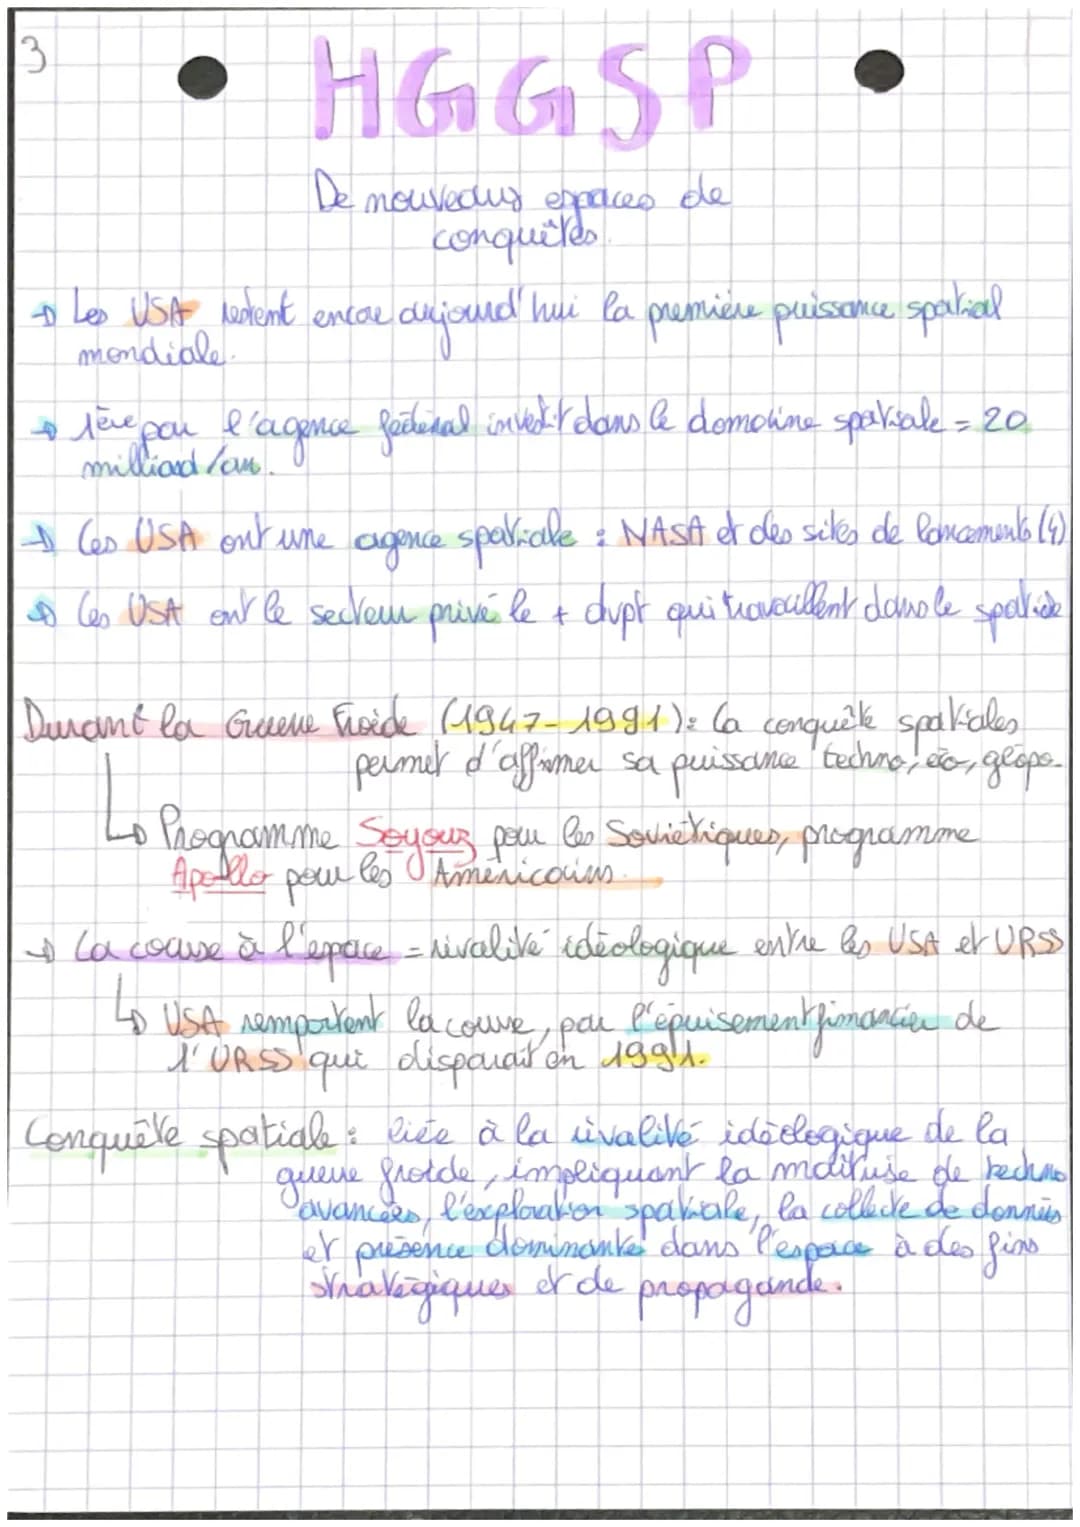 3
HGGSP
De nouveaux espaces de
conquêtes.
→ Les USA restent encore aujourd'hui la première puissance spatial
mondiale.
→ 1ère par l'agence fédéral investit dans le domaine spatiale = 20
milliard/an.
→ Les USA ont une agence spatiale : NASA et des sites de lancements (4)
→ Les USA ont le secteur privé le + dvpt qui travaillent dans le spatiale
Durant la Guerre Froide (1947-1991): la conquête spatiales
permet d'affirmer sa puissance techno, éco, géopo.
↳ Programme Soyouz pour les Soviétiques, programme
Apollo pour les Américains.
→ La course à l'espace = rivalité idéologique entre les USA et URSS
↳ USA remportent la course, par l'épuisement financier de
l'URSS qui disparait en 1991.
Conquête spatiale : liée à la rivalité idéologique de la
guerre froide, impliquant la maîtrise de techno
avancées, l'exploration spatiale, la collecte de données
et présence dominante dans l'espace à des fins
stratégiques et de propagande.